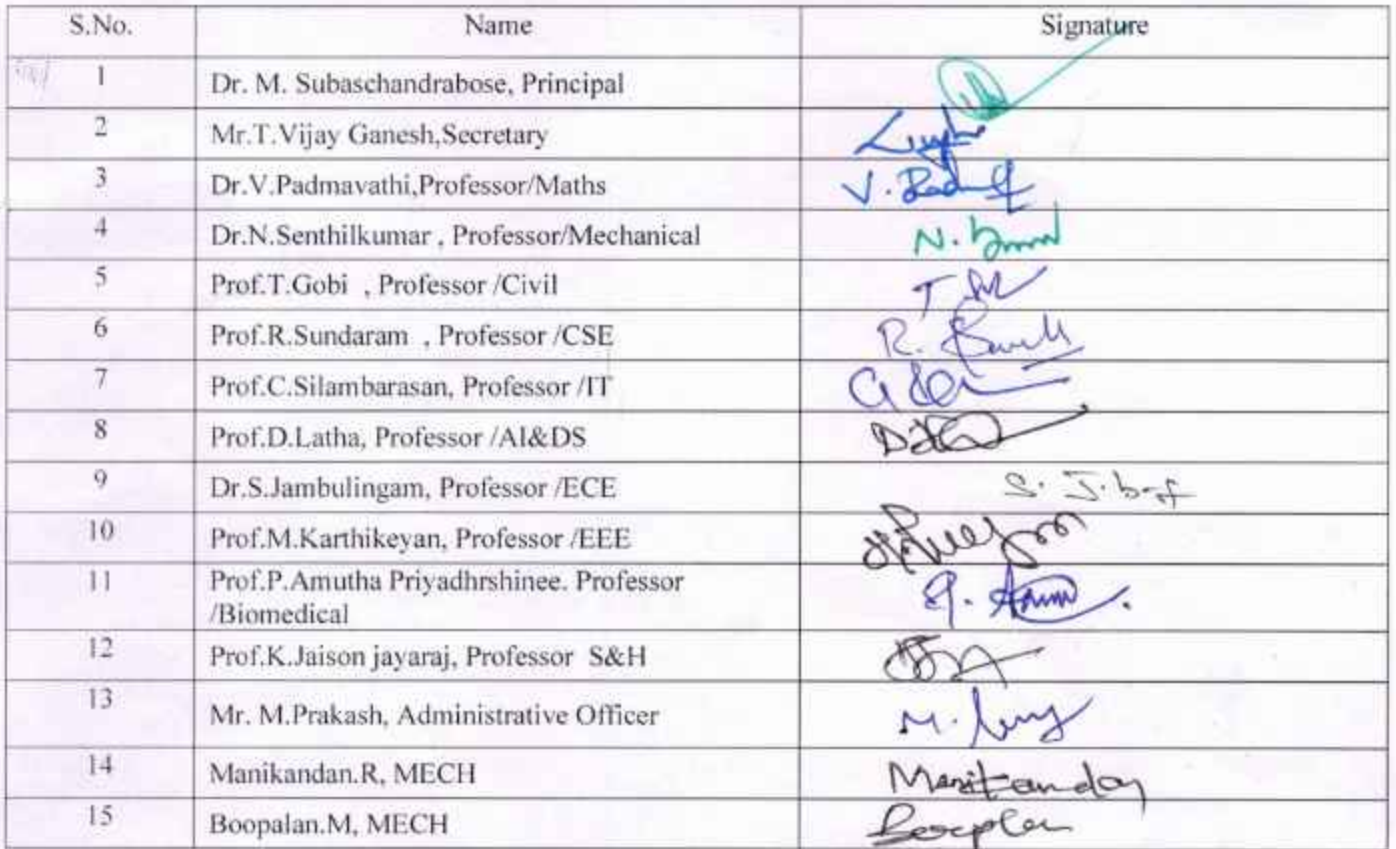 S.No. Name Signature
1 Dr. M. Subaschandrabose, Principal
2 Mr.T.Vijay Ganesh,Secretary
3 Dr.V.Padmavathi,Professor/Maths V.
4 Dr.N.Senthilkumar , Professor/Mechanical N.
5 Prof.T.Gobi , Professor /Civil T
6 Prof.R.Sundaram , Professor /CSE R.
7 Prof.C.Silambarasan, Professor /IT
8 Prof.D.Latha, Professor /AI&DS
9 Dr.S.Jambulingam, Professor /ECE S. J.
10 Prof.M.Karthikeyan, Professor /EEE
11 Prof.P.Amutha Priyadhrshinee. Professor
/Biomedical
12 Prof.K.Jaison jayaraj, Professor S&H
13 Mr. M.Prakash, Administrative Officer M.
14 Manikandan.R, MECH Manikandan
15 Boopalan.M, MECH